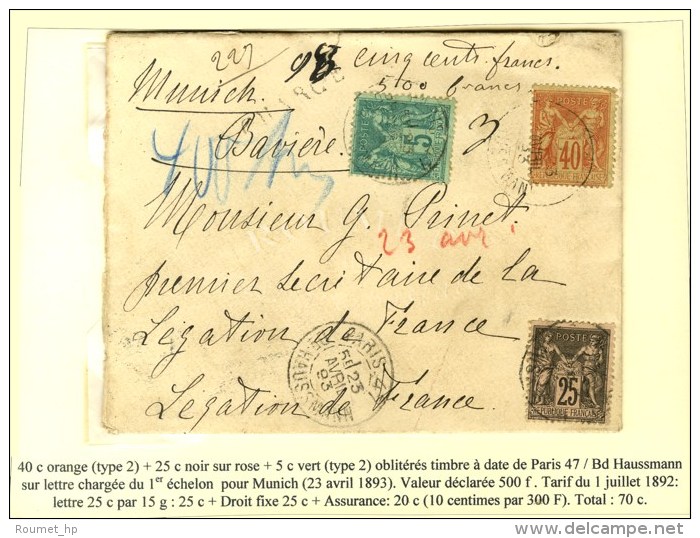 227
98 cinq cents francs.
500 francs
Munich.
Bavière.
3
400 M
Monsieur G. Prinet
23 avr.
premier secrétaire de la
Légation de France
Legation de France.
POSTE
5
POSTE
40
REPUBLIQUE FRANCAISE
25
REPUBLIQUE FRANCAISE
PARIS 47
5E 23
AVRIL
93
Bd HAUSSMANN
40 c orange (type 2) + 25 c noir sur rose + 5 c vert (type 2) oblitérés timbre à date de Paris 47 / Bd Haussmann
sur lettre chargée du 1er échelon pour Munich (23 avril 1893). Valeur déclarée 500 f . Tarif du 1 juillet 1892:
lettre 25 c par 15 g : 25 c + Droit fixe 25 c + Assurance: 20 c (10 centimes par 300 F). Total : 70 c.
Roumet_hp
delcampe.net